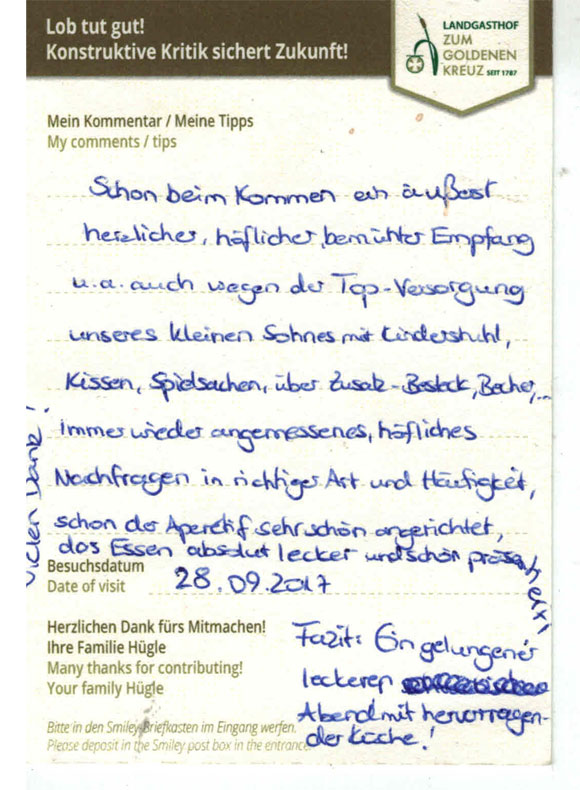 Lob tut gut!
Konstruktive Kritik sichert Zukunft!
LANDGASTHOF
ZUM
GOLDENEN
KREUZ SEIT 1787
Mein Kommentar / Meine Tipps
My comments / tips
Schon beim Kommen ein äußerst
herzlicher, höflicher, bemühter Empfang
u.a. auch wegen der Top-Versorgung
unseres kleinen Sohnes mit Kinderstuhl,
Kissen, Spielsachen, über Zusatz-Besteck, Becher,...
immer wieder angemessenes, höfliches
Nachfragen in richtiger Art und Häufigkeit,
schon der Aperetif sehr schön angerichtet,
das Essen absolut lecker und schön präsentiert
Vielen Dank!
Besuchsdatum
Date of visit
28.09.2017
Herzlichen Dank fürs Mitmachen!
Ihre Familie Hügle
Many thanks for contributing!
Your family Hügle
Fazit: Ein gelungener
leckerer
Abend mit hervorragen-
der Küche!
Bitte in den Smiley-Briefkasten im Eingang werfen.
Please deposit in the Smiley post box in the entrance.